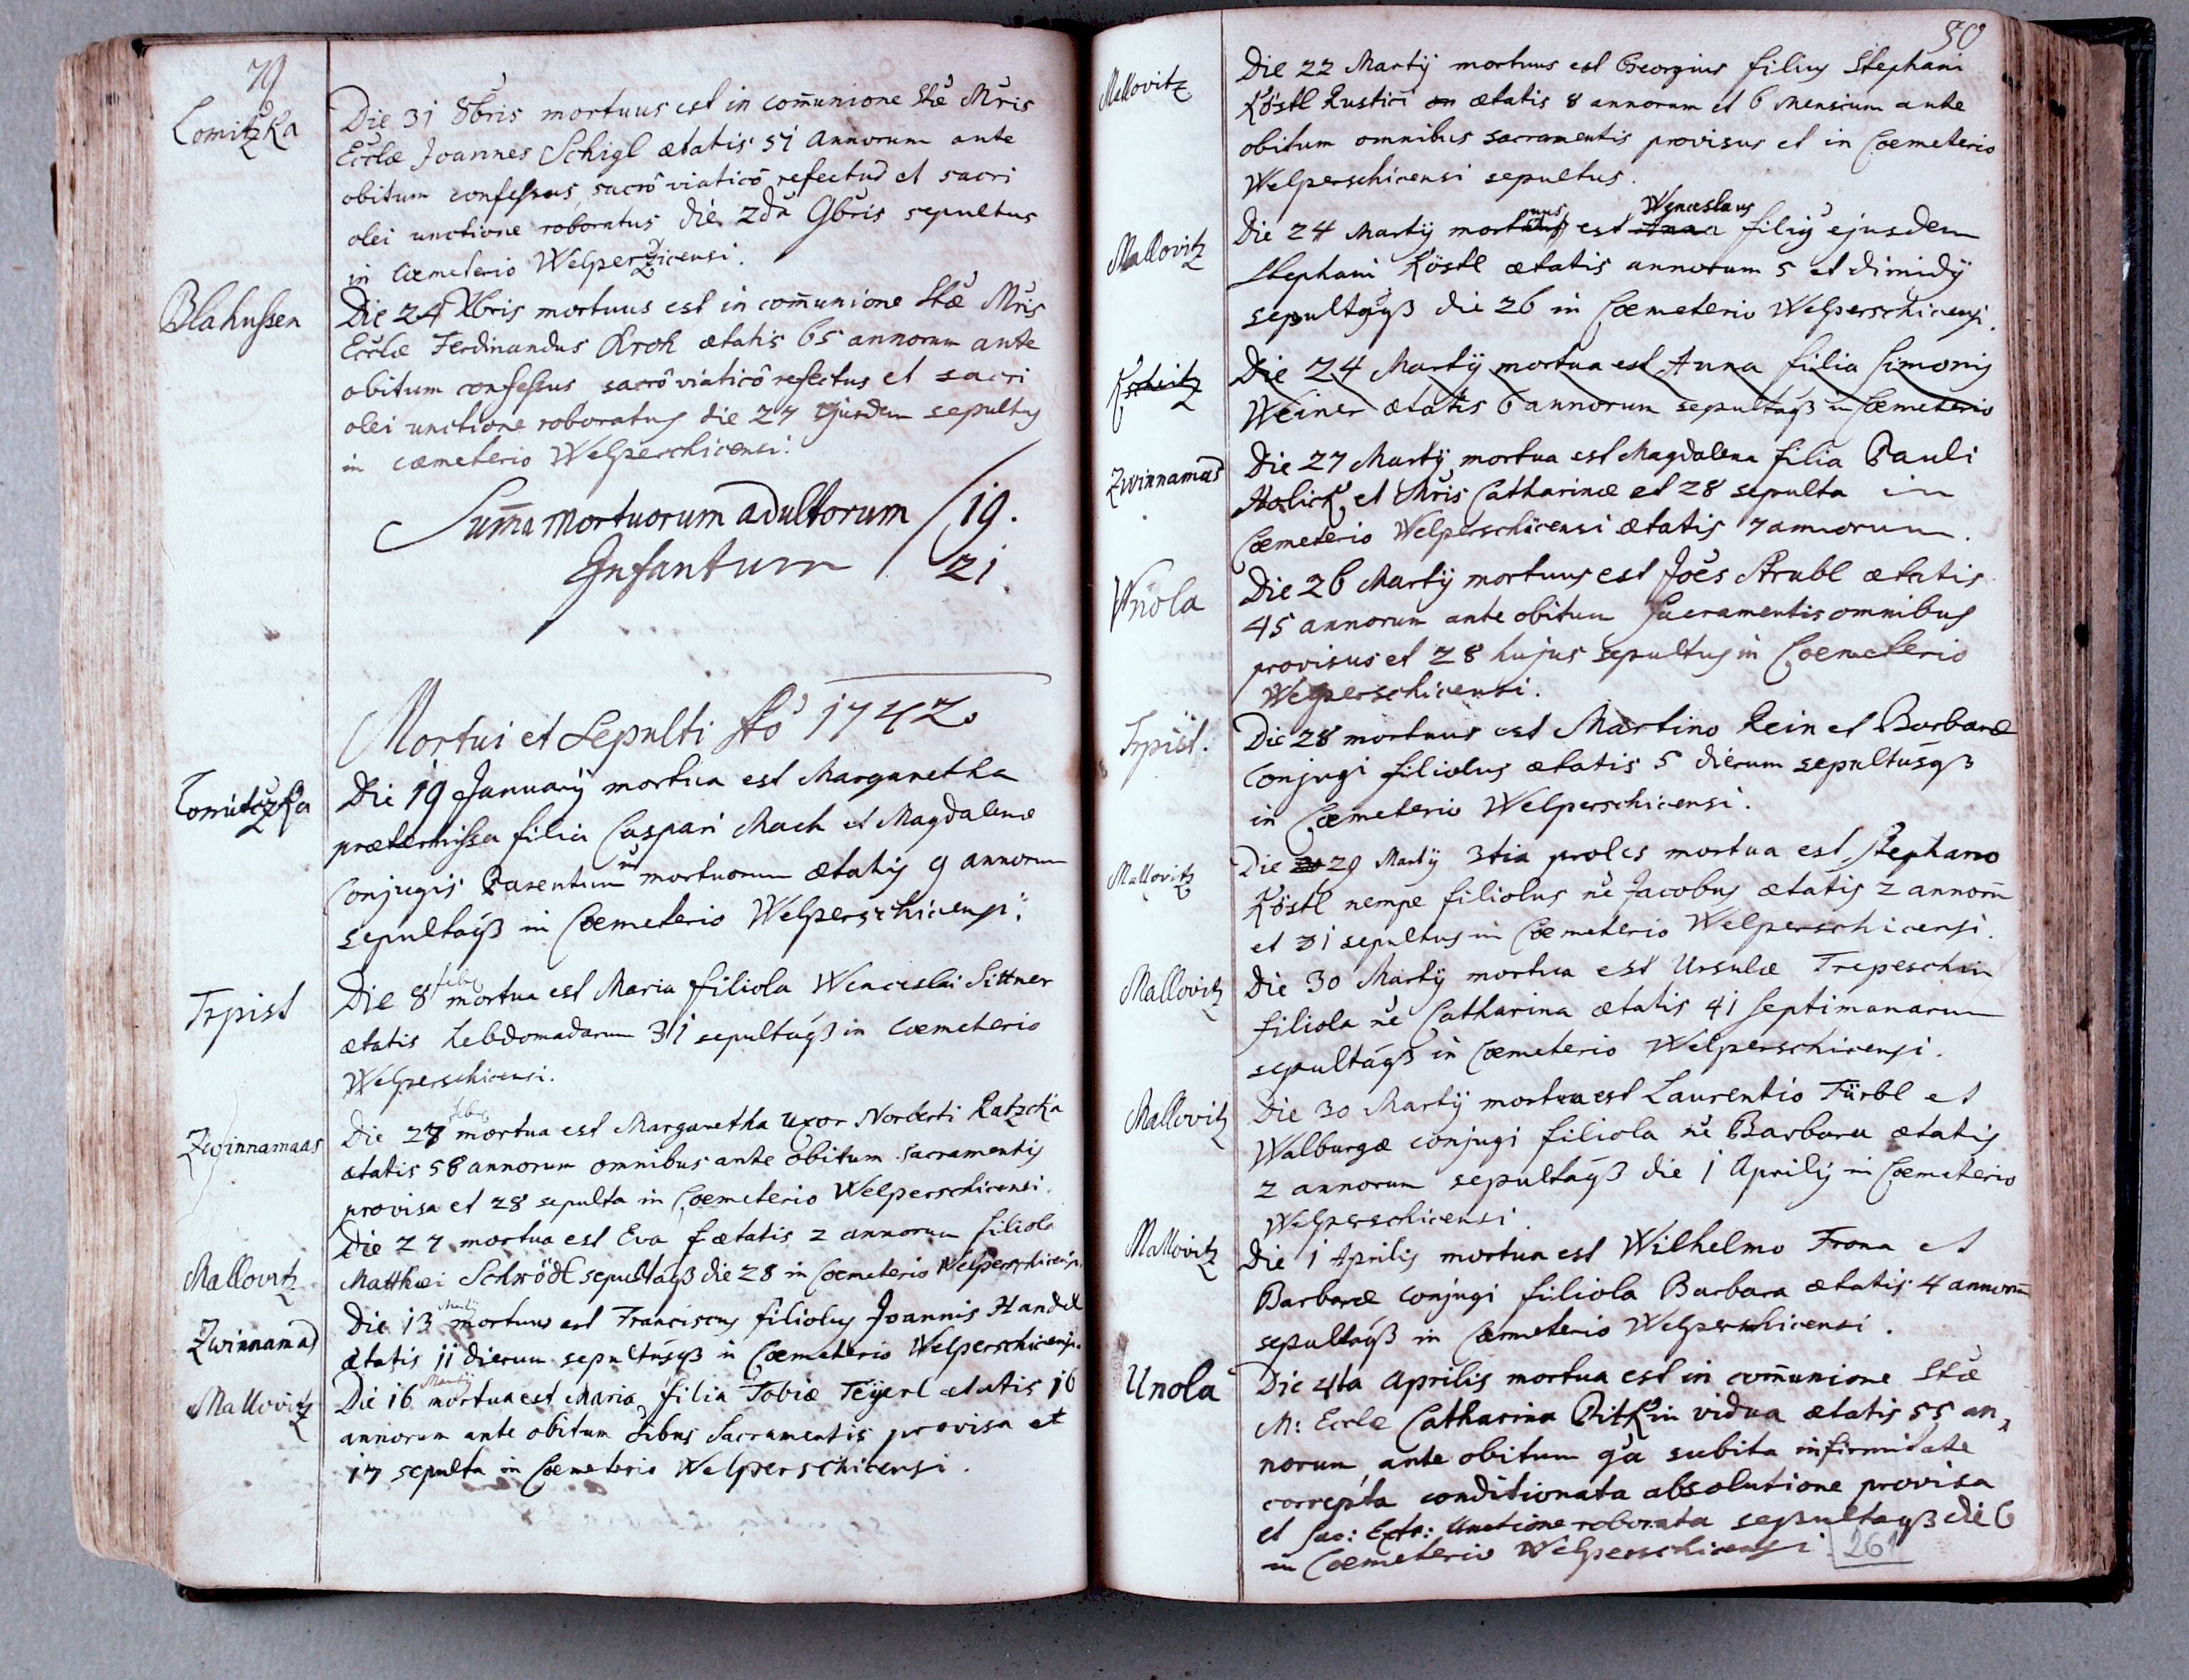 79
Lomitzka
Die 31 8bris mortuus est in com̄unione Stæ Mr̃is
Eccłæ Joannes Schigl ætatis 51 Annorum ante
obitum confessus, sacrô viaticô refectus et sacri
olei unctione roboratus die 2dã 9bris sepultus
in Cœmeterio Welperzicensi.
Blahussen
Die 24 Xbris mortuus est in com̄unione Stæ Mr̃is
Eccłæ Ferdinandus Krok ætatis 65 annorum ante
obitum confessus sacrô viaticô refectus et sacri
olei unctione roboratus die 27 ejusdem sepultus
in cœmeterio Welperchicensi.
Sum̄a Mortuorum adultorum / 19.
Infantum / 21
Mortui et Sepulti Aõ 1742.
Lomitczka
Die 19 January mortua est Margaretha
prætermissa filia Caspari Mach et Magdalenæ
Conjugis Parentum mortuorum ætatis 9 annorum
sepultaqß in Cœmeterio Welperschicensi.
Trpist
Die 8 febr mortua est Maria filiola Wenceslai Sittner
ætatis hebdomadarum 31 sepultaqß in Cœmeterio
Welperschicensi.
Zwinnamaas
Die 27 febr mortua est Margaretha uxor Norberti Ratzcka
ætatis 58 annorum omnibus ante obitum sacramentis
provisa et 28 sepulta in Cœmeterio Welperschicensi.
Mallovitz
Die 27 mortua est Eva ætatis 2 annorum filiola
Matthæi Schrödl sepultaqß die 28 in Cœmeterio Welperschicensi.
Zwinnamas
Die 13 Martij mortuus est Franciscus filiolus Joannis Handl
ætatis 11 dierum sepultusqß in Cœmeterio Welperschicensi.
Mallovitz
Die 16 Martij mortua est Maria filia Tobiæ Teÿerl ætatis 16
annorum ante obitum õibus Sacramentis provisa et
17 sepulta in Cœmeterio Welperschicensi.
50
Mallovitz
Die 22 Martÿ mortuus est Georgius filius Stephani
Köstl Rustici ætatis 8 annorum et 6 Mensium ante
obitum omnibus sacramentis provisus et in Cœmeterio
Welperschicensi sepultus.
Mallovitz
Die 24 Martÿ mortuus est Anna Wenceslaus filiÿ ejusdem
Stephani Köstl ætatis annorum 5 et dimidÿ
sepultqß die 26 in Cœmeterio Welperschicensi.
Die 24 Martÿ mortua est Anna filia Simonis
Weiner ætatis 6 annorum sepultaqß in Cœmeterio
Zwinnamas
Die 27 Martÿ mortua est Magdalena filia Pauli
Holick et Mr̃is Catharinæ et 28 sepulta in
Cœmeterio Welperschicensi ætatis 7 annorum.
Vnola
Die 26 Martÿ mortuus est Joẽs Strubl ætatis
45 annorum ante obitum Sacramentis omnibus
provisus et 28 hujus sepultus in Cœmeterio
Welperschicensi.
Trpist.
Die 28 mortuus est Martino Rein et Barbaræ
Conjugi filiolus ætatis 5 dierum sepultusqß
in Cœmeterio Welperschicensi.
Mallovitz
Die 29 Martÿ 3tia proles mortua est Stephano
Köstl nempe filiolus nẽ Jacobus ætatis 2 annorũ
et 31 sepultus in Cœmeterio Welperschicensi.
Mallovitz
Die 30 Martÿ mortua est Ursulæ Trepeschin
filiola nẽ Catharina ætatis 41 septimanarum
sepultaqß in Cœmeterio Welperschicensi.
Mallovitz
Die 30 Martÿ mortua est Laurentio Fürbl et
Walburgæ conjugi filiola nẽ Barbara ætatis
2 annorum sepultaqß die 1 Aprilis in Cœmeterio
Welperschicensi.
Mallovitz
Die 1 Aprilis mortua est Wilhelmo Frona et
Barbaræ conjugi filiola Barbara ætatis 4 annorũ
sepultaqß in Cœmeterio Welperschicensi.
Unola
Die 4ta Aprilis mortua est in com̄unione Stæ
M: Eccłæ Catharina Pitkin vidua ætatis 55 an„
norum, ante obitum qã subita infirmitate
correpta conditionata absolutione provisa
et Sac: Extr: Unctione roborata sepultaqß die 6
in Cœmeterio Welperschicensi.
261